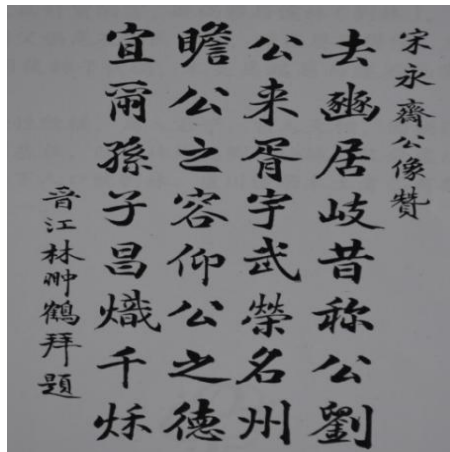 宋永齋公像贊
去豳居岐昔称公劉
公来胥宇武榮名州
瞻公之容仰公之德
宜爾孫子昌熾千秋
晉江林翀鶴拜題